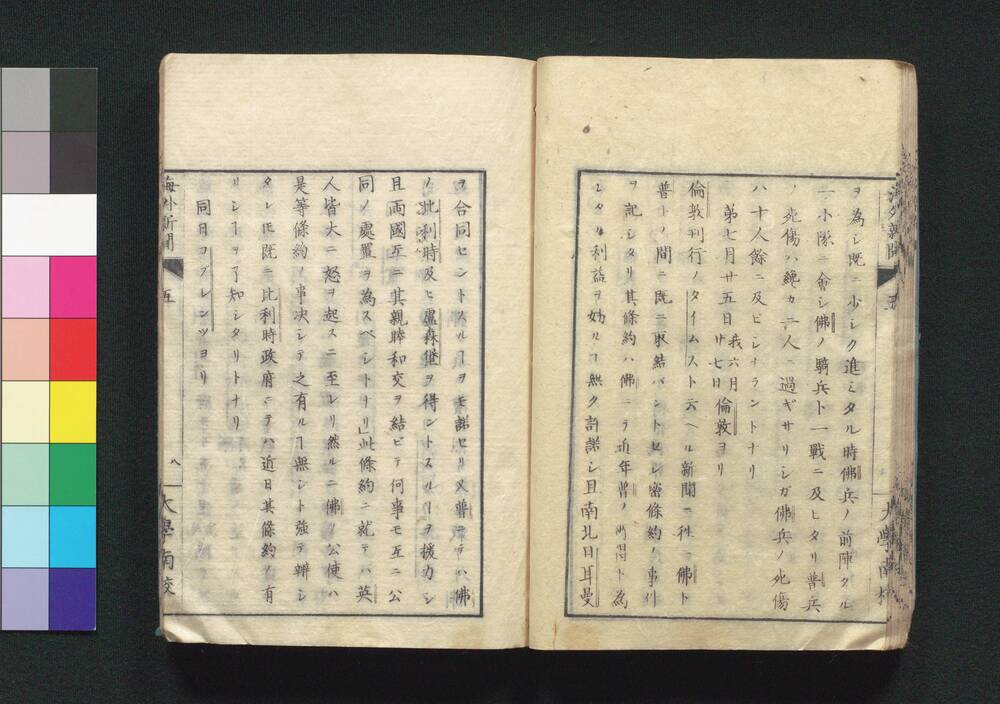 ヲ為シ既ニ少シク進ミタル時佛兵ノ前陣タル
一小隊ニ會シ佛ノ騎兵ト一戰ニ及ヒタリ普兵
ノ死傷ハ纔カ二人ニ過ギサリシガ佛兵ノ死傷
ハ十人餘ニ及ビシナラントナリ
第七月廿五日 我六月廿七日 倫敦ヨリ
倫敦刊行ノタイムスト云ヘル新聞ニ往ニ佛ト
普トノ間ニ既ニ取結バントセシ密條約ノ事件
ヲ記シタリ其條約ハ佛ニテ近年普ノ所得ト為
シタル利益ヲ妨ルヿ無ク許諾シ且南北日耳曼
ヲ合同セントスルヿヲモ諾セリ又普ニテハ佛
ノ比利時及ヒ盧森堡ヲ得ントスルヿヲ援力シ
且両國互ニ其親睦和交ヲ結ビテ何事モ互ニ公
同ノ處置ヲ為スベシトナリ」此條約ニ就テハ英
人皆大ニ怒ヲ起スニ至レリ然ルニ佛ノ公使ハ
是等條約ノ事決シテ之有ルヿ無シト強テ辨シ
タレ𪜈既ニ比利時政府ニテハ近日其條約ノ有
リシヿヲ了知シタリトナリ
同日コブレンツヨリ
海外新聞 五 八 大學南校